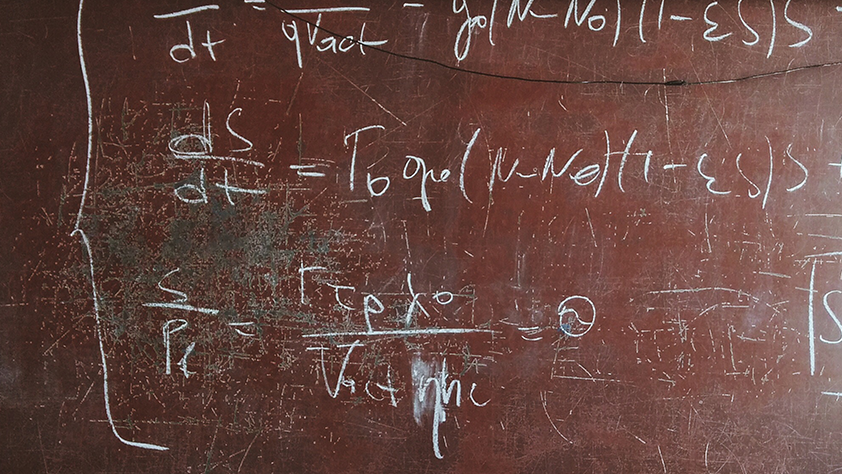 /dt = /qVact - g₀(N-N₀)(1-εS)S +
dS/dt = Γ₀g₀(N-N₀)(1-εS)S +
S/Pf = Γτpλ₀/Vactηhc = ②